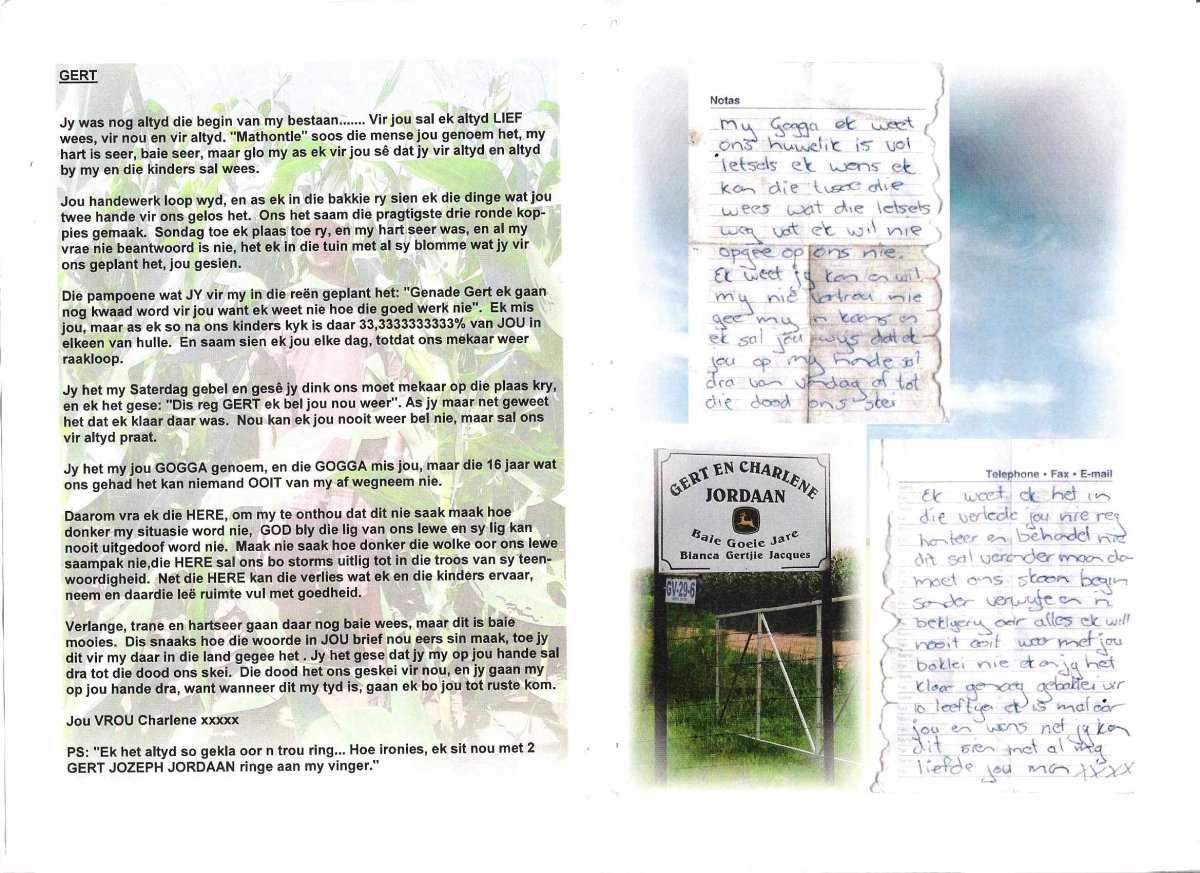 GERT
Jy was nog altyd die begin van my bestaan....... Vir jou sal ek altyd LIEF
wees, vir nou en vir altyd. "Mathontle" soos die mense jou genoem het, my
hart is seer, baie seer, maar glo my as ek vir jou sê dat jy vir altyd en altyd
by my en die kinders sal wees.
Jou handewerk loop wyd, en as ek in die bakkie ry sien ek die dinge wat jou
twee hande vir ons gelos het. Ons het saam die pragtigste drie ronde kop-
pies gemaak. Sondag toe ek plaas toe ry, en my hart seer was, en al my
vrae nie beantwoord is nie, het ek in die tuin met al sy blomme wat jy vir
ons geplant het, jou gesien.
Die pampoene wat JY vir my in die reën geplant het: "Genade Gert ek gaan
nog kwaad word vir jou want ek weet nie hoe die goed werk nie". Ek mis
jou, maar as ek so na ons kinders kyk is daar 33,3333333333% van JOU in
elkeen van hulle. En saam sien ek jou elke dag, totdat ons mekaar weer
raakloop.
Jy het my Saterdag gebel en gesê jy dink ons moet mekaar op die plaas kry,
en ek het gese: "Dis reg GERT ek bel jou nou weer". As jy maar net geweet
het dat ek klaar daar was. Nou kan ek jou nooit weer bel nie, maar sal ons
vir altyd praat.
Jy het my jou GOGGA genoem, en die GOGGA mis jou, maar die 16 jaar wat
ons gehad het kan niemand OOIT van my af wegneem nie.
Daarom vra ek die HERE, om my te onthou dat dit nie saak maak hoe
donker my situasie word nie, GOD bly die lig van ons lewe en sy lig kan
nooit uitgedoof word nie. Maak nie saak hoe donker die wolke oor ons lewe
saampak nie,die HERE sal ons bo storms uitlig tot in die troos van sy teen-
woordigheid. Net die HERE kan die verlies wat ek en die kinders ervaar,
neem en daardie leë ruimte vul met goedheid.
Verlange, trane en hartseer gaan daar nog baie wees, maar dit is baie
mooies. Dis snaaks hoe die woorde in JOU brief nou eers sin maak, toe jy
dit vir my daar in die land gegee het . Jy het gese dat jy my op jou hande sal
dra tot die dood ons skei. Die dood het ons geskei vir nou, en jy gaan my
op jou hande dra, want wanneer dit my tyd is, gaan ek bo jou tot ruste kom.
Jou VROU Charlene xxxxx
PS: "Ek het altyd so gekla oor n trou ring... Hoe ironies, ek sit nou met 2
GERT JOZEPH JORDAAN ringe aan my vinger."
Notas
My Gogga ek weet
ons huwelik is vol
letsels ek wens ek
kan die twee die
wees wat die letsels
weg vat ek wil nie
opgee op ons nie.
Ek weet jy kan en wil
my nie vertrou nie
gee my n kans en
ek sal jou wys dat ek
jou op my hande sal
dra van vandag af tot
die dood ons skei
GERT EN CHARLENE
JORDAAN
Baie Goeie Jare
Bianca Gertjie Jacques
GV-29-6
Telephone • Fax • E-mail
Ek weet ek het in
die verlede jou nie reg
hanteer en behandel nie
dit sal verander maar dan
moet ons skoon begin
sonder verwyte en n
oor alles ek will
nooit ooit weer met jou
baklei nie want jy het
klaar genoeg gebaklei vir
10 leeftye ek is mal oor
jou en wens net jy kan
dit sien met al my
liefde jou man xxxx